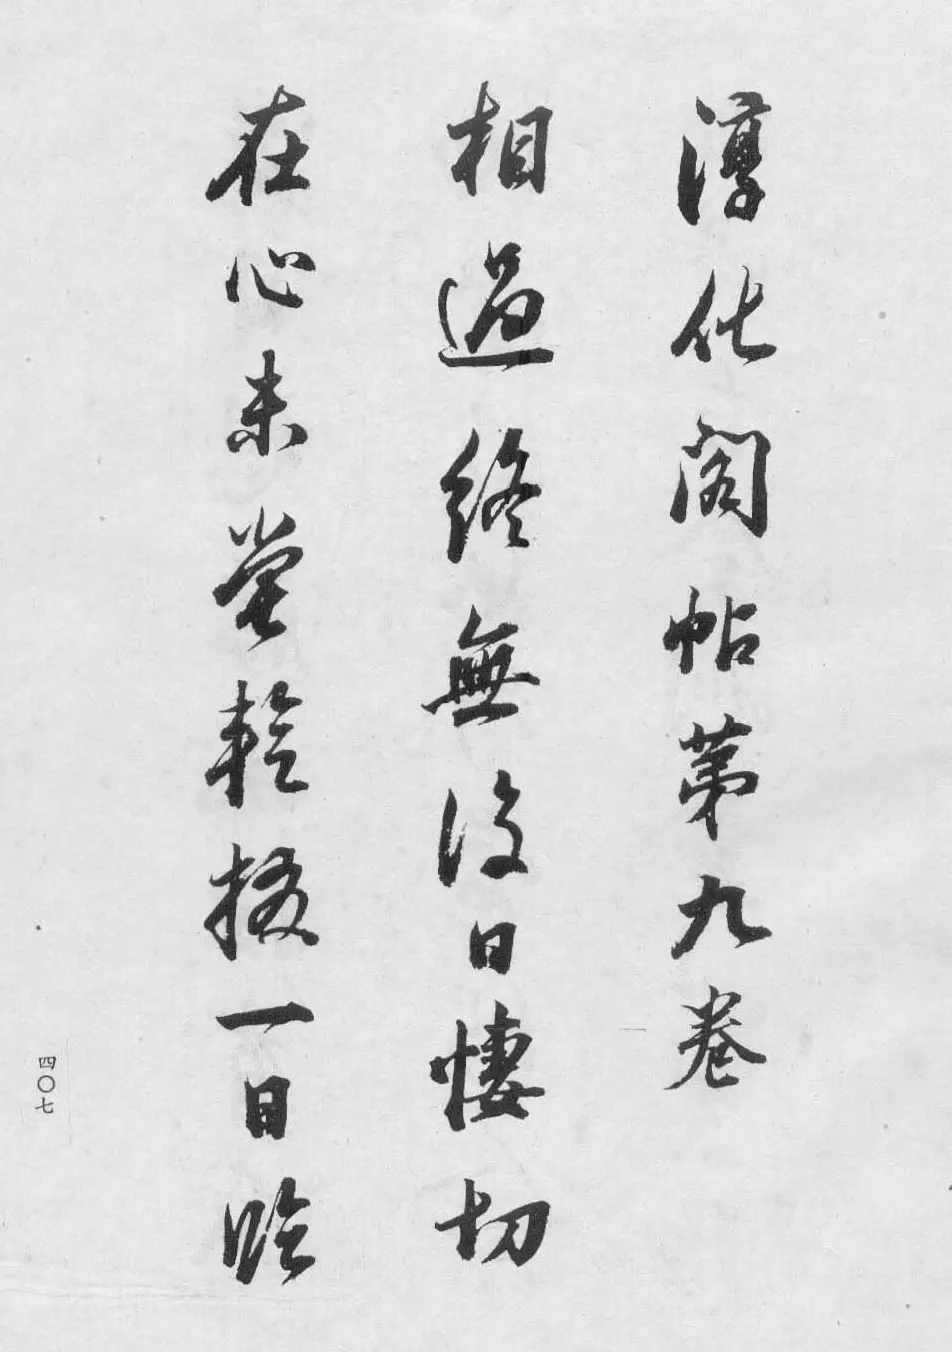 淳化閣帖第九卷
相過終無復日悽切
在心未嘗暫掇一日臨
四〇七